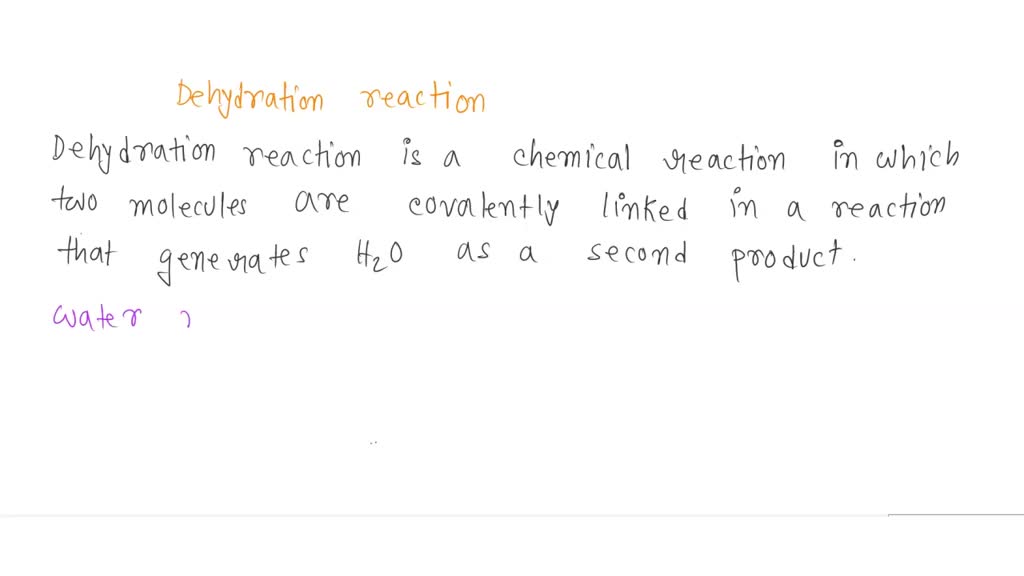 Dehydration reaction
Dehydration reaction is a chemical reaction in which
two molecules are covalently linked in a reaction
that generates H₂O as a second product.
water